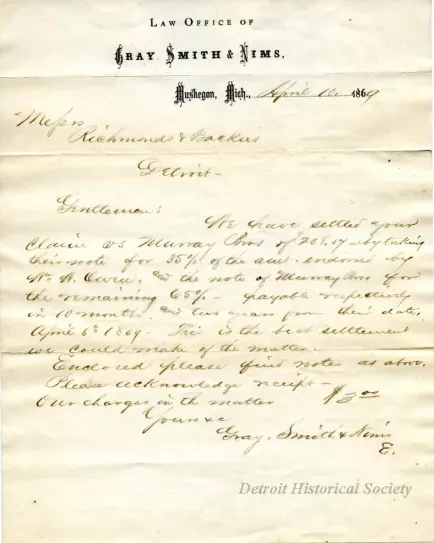 LAW OFFICE OF
GRAY, SMITH & NIMS,
Muskegon, Mich., April 10, 1869
Messrs
Richmonds & Backus
Detroit-
Gentlemen:
We have settled your
Claim vs Murray Bros of 208.17- by taking
their note for 35% of the amt. endorsed by
W. Owen, and the note of Murray Bros for
the remaining 65%- payable respectively
in 10 months and two years from their date,
April 6th 1869- This is the best settlement
we could make of the matter.
Enclosed please find notes as above.
Please acknowledge receipt-
Our charges in the matter $3.00
Yours &c
Gray, Smith & Nims
E.
Detroit Historical Society